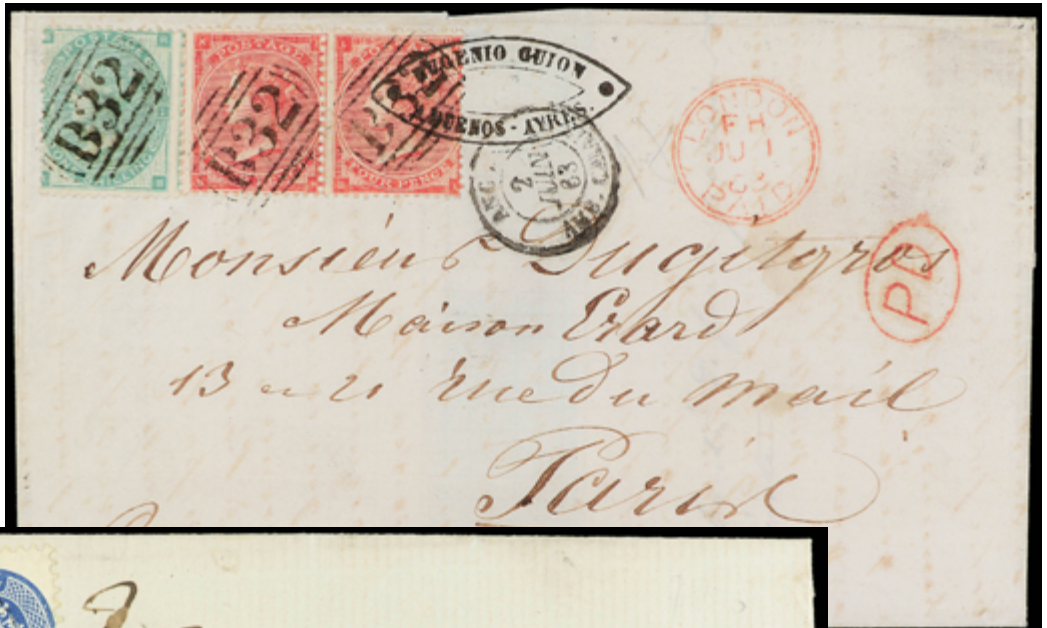 POSTAGE
B32
ONE SHILLING
POSTAGE
B32
POSTAGE
B32
FOUR PENCE
EUGENIO GUION
BUENOS - AYRES.
ANG.
2
JUIN
63
AMB. CALAIS
LONDON
FH
JU 1
63
PAID
PD
Monsieur Dugitgros
Maison Erard
13 - 21 rue du mail
Paris